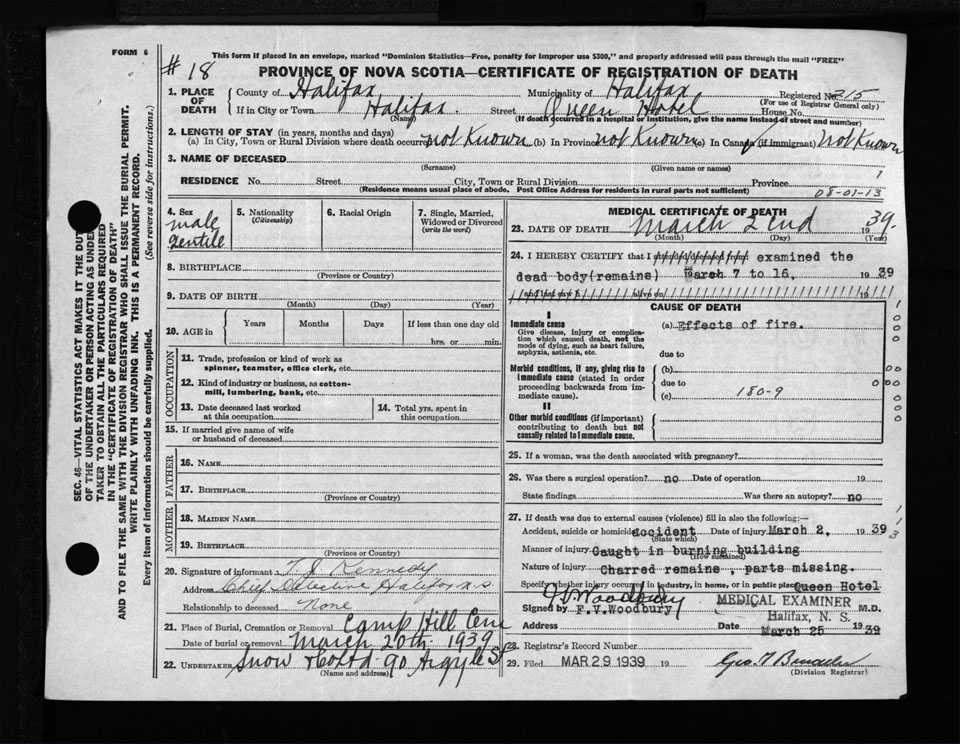 FORM 6
This form if placed in an envelope, marked "Dominion Statistics—Free, penalty for improper use $300," and properly addressed will pass through the mail "FREE"
# 18
PROVINCE OF NOVA SCOTIA—CERTIFICATE OF REGISTRATION OF DEATH
1. PLACE OF DEATH
County of Halifax Municipality of Halifax Registered No. 215
(For use of Registrar General only)
If in City or Town Halifax. Street Queen Hotel House No.
(Name) (If death occurred in a hospital or institution, give the name instead of street and number)
2. LENGTH OF STAY (in years, months and days)
(a) In City, Town or Rural Division where death occurred not Known (b) In Province not Known (c) In Canada (if immigrant) not Known
3. NAME OF DECEASED
(Surname) (Given name or names)
RESIDENCE No. Street City, Town or Rural Division Province
(Residence means usual place of abode. Post Office Address for residents in rural parts not sufficient)
08-01-13
4. Sex
male
Gentile
5. Nationality
(Citizenship)
6. Racial Origin
7. Single, Married, Widowed or Divorced
(write the word)
8. BIRTHPLACE
(Province or Country)
9. DATE OF BIRTH
(Month) (Day) (Year)
10. AGE in
Years Months Days If less than one day old
hrs. or min.
OCCUPATION
11. Trade, profession or kind of work as
spinner, teamster, office clerk, etc.
12. Kind of industry or business, as cotton-
mill, lumbering, bank, etc.
13. Date deceased last worked
at this occupation
14. Total yrs. spent in
this occupation
15. If married give name of wife
or husband of deceased
FATHER
16. NAME
17. BIRTHPLACE
(Province or Country)
MOTHER
18. MAIDEN NAME
19. BIRTHPLACE
(Province or Country)
20. Signature of informant T. J. Kennedy
Address Chief Detective Halifax N.S
Relationship to deceased None
21. Place of Burial, Cremation or Removal Camp Hill Cem
Date of burial or removal March 20th 1939
22. UNDERTAKER Snow & Co Ltd 90 Argyle St
(Name and address)
MEDICAL CERTIFICATE OF DEATH
23. DATE OF DEATH March 2 end 1939.
(Month) (Day) (Year)
24. I HEREBY CERTIFY that I examined the
dead body(remains) March 7 to 16, 1939
and last saw h alive on 19
CAUSE OF DEATH
I
Immediate cause
Give disease, injury or complica-
tion which caused death, not the
mode of dying, such as heart failure,
asphyxia, asthenia, etc.
(a) Effects of fire.
due to
Morbid conditions, if any, giving rise to
immediate cause (stated in order
proceeding backwards from im-
mediate cause).
(b)
due to
(c) 180-9
II
Other morbid conditions (if important)
contributing to death but not
causally related to immediate cause.
25. If a woman, was the death associated with pregnancy?
26. Was there a surgical operation? no Date of operation 19
State findings Was there an autopsy? no
27. If death was due to external causes (violence) fill in also the following:—
Accident, suicide or homicide accident Date of injury March 2, 1939
(State which)
Manner of injury Caught in burning building
(How sustained)
Nature of injury Charred remains, parts missing.
Specify whether injury occurred in industry, in home, or in public place Queen Hotel
F.V. Woodbury
Signed by F.V.Woodbury M.D.
MEDICAL EXAMINER
Halifax, N. S.
Address Date March 25 1939
28. Registrar's Record Number
29. Filed MAR 29 1939 19
(Division Registrar)
SEC. 46—VITAL STATISTICS ACT MAKES IT THE DUTY
OF THE UNDERTAKER OR PERSON ACTING AS UNDER-
TAKER TO OBTAIN ALL THE PARTICULARS REQUIRED
IN THE "CERTIFICATE OF REGISTRATION OF DEATH"
AND TO FILE THE SAME WITH THE DIVISION REGISTRAR WHO SHALL ISSUE THE BURIAL PERMIT.
WRITE PLAINLY WITH UNFADING INK. THIS IS A PERMANENT RECORD.
Every item of information should be carefully supplied. (See reverse side for instructions.)